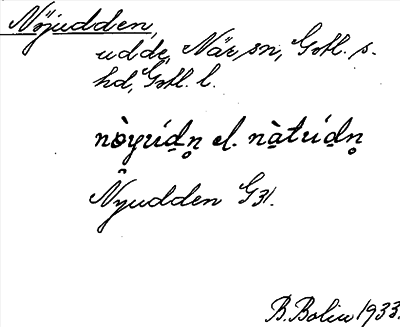 Nöjudden,
udde, När sn, Gotl. s.
hd, Gotl. l.
nòyúdn̥ el.
Nyudden G31.
B. Bolin 1933.